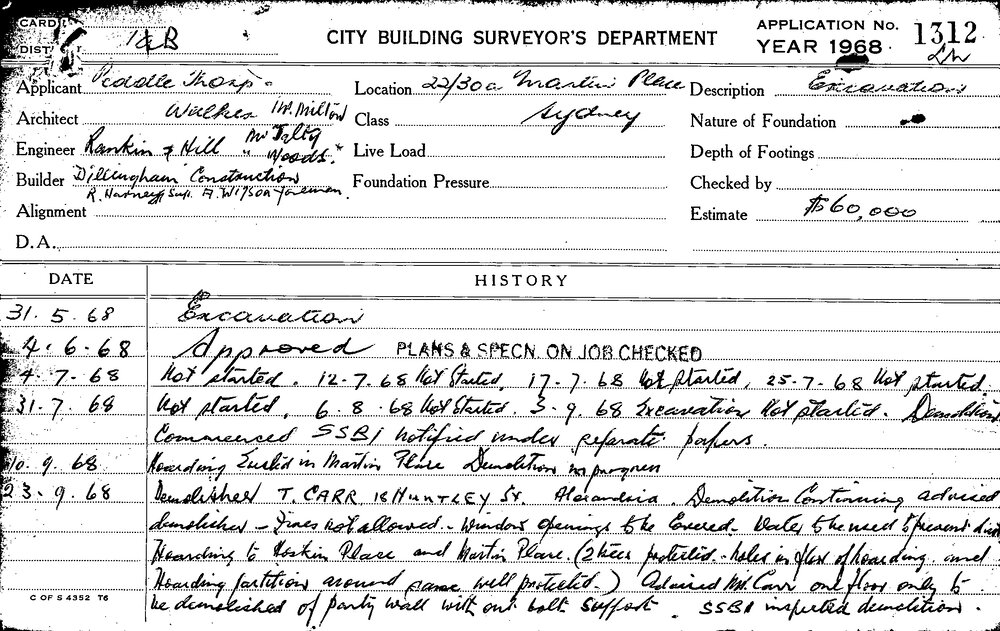 CARD
DIST
1&B
CITY BUILDING SURVEYOR'S DEPARTMENT
APPLICATION No. 1312
YEAR 1968
Applicant Peddle Thorp
Location 22/30a Martin Place
Description Excavation
Architect Walker Mr. Milton
Class Sydney
Nature of Foundation
Engineer Rankin & Hill " Woods.
Live Load
Depth of Footings
Builder Dillingham Construction
R. Harney Sup. A. Wilson foreman.
Foundation Pressure
Checked by
Alignment
Estimate $60,000
D.A.
DATE HISTORY
31.5.68 Excavation
4.6.68 Approved PLANS & SPECN. ON JOB CHECKED
4.7.68 Not started. 12.7.68 Not Started. 17.7.68 Not started, 25.7.68 Not started
31.7.68 Not started, 6.8.68 Not Started. 3.9.68 Excavation Not started. Demolition
Commenced SSBI notified under separate papers.
10.9.68 Hoarding Erected in Martin Place Demolition in progress
23.9.68 Demolisher T. CARR 18 HUNTLEY St. Alexandria. Demolition Continuing advised
demolisher - Fires not allowed. - Window openings to be Covered. Water to be used to prevent dust
Hoarding to Hoskin Place and Martin Place. (2 trees protected - holes in floor of hoarding and
Hoarding partition around same well protected.) Advised Mr Carr one floor only to
be demolished of party wall with out bolt support. SSBI inspected demolition.
C OF S 4352 T6